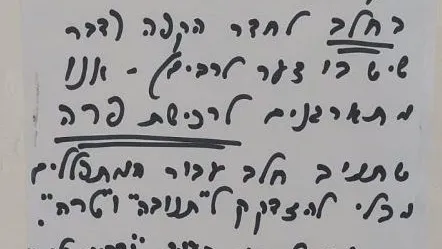 בחלב לחדר הקפה (דבר
שיש בו צער לרבים) - אנו
מתארגנים לרכישת פרה
שתניב חלב עבור המתפללים
מבלי להזדקק ל"תנובה" ו"טרה".